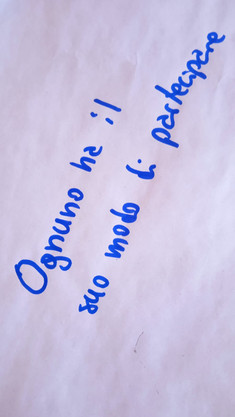 Ognuno ha il
suo modo di partecipare